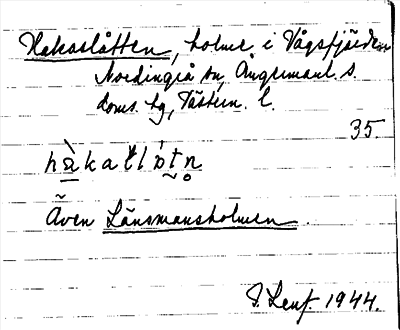 Hakaslåtten, holme i Vågsfjärden
Nordingrå sn, Ångermanl. s.
doms. hg, Västern. l.
35.
hàkaʃlótn̥
Även Länsmansholmen.
1944.